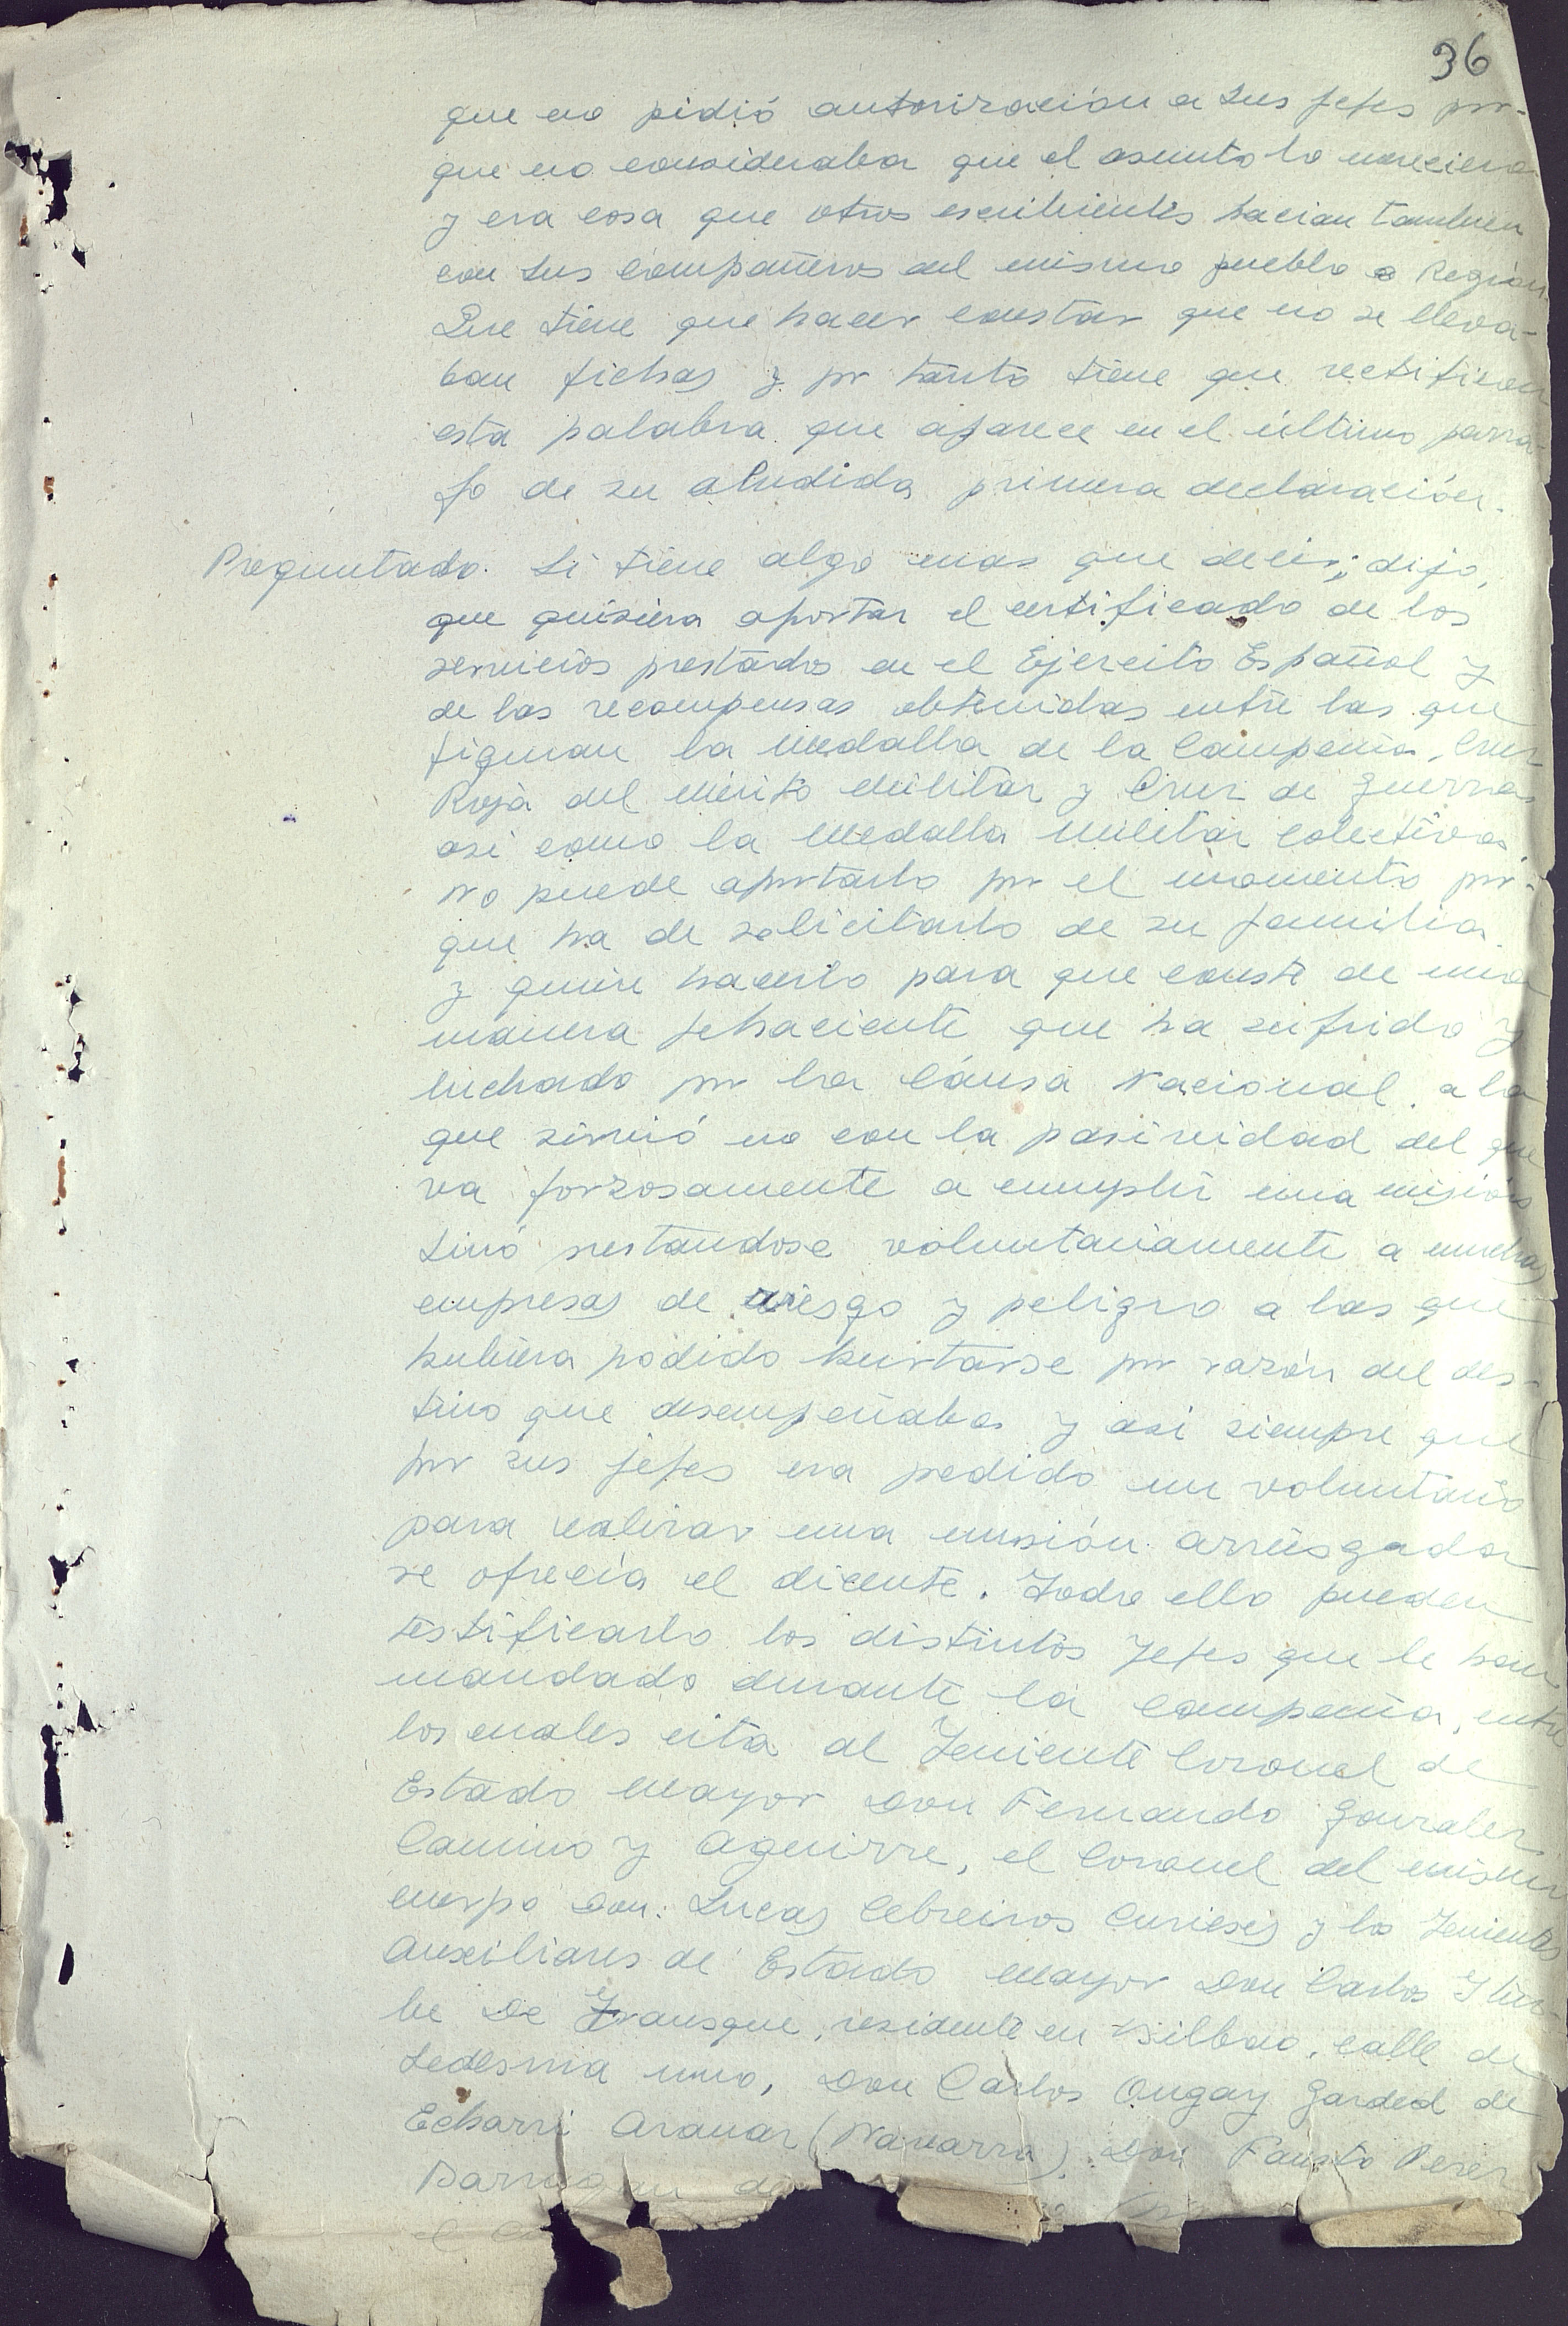 36
que no pidió autorización a sus jefes por-
que no consideraba que el asunto lo mereciera
y era cosa que otros escribientes hacian tambien
con sus compañeros del mismo pueblo o Región
Que tiene que hacer constar que no se lleva-
ban fichas y por tanto tiene que rectificar
esta palabra que aparece en el último parra-
fo de su aludida primera declaración.
Preguntado. Si tiene algo mas que decir; dijo,
que quisiera aportar el certificado de los
servicios prestados en el Ejercito Español y
de las recompensas obtenidas entre las que
figuran la Medalla de la Campaña, Cruz
Roja del Mérito Militar y Cruz de Guerra
asi como la Medalla Militar Colectiva
No puede aportarlo por el momento por-
que ha de solicitarlo de su familia
y quiere hacerlo para que conste de una
manera fehaciente que ha sufrido y
luchado por la Causa Nacional a la
que sirvió no con la pasividad del que
va forzosamente a cumplir una misión
sinó prestandose voluntariamente a muchas
empresas de riesgo y peligro a las que
hubiera podido hurtarse por razón del des-
tino que desempeñaba y asi siempre que
por sus jefes era pedido un voluntario
para realizar una misión arriesgada
se ofrecía el dicente. Todo ello pueden
testificarlo los distintos Jefes que le han
mandado durante la Campaña, entre
los cuales cita al Teniente Coronel de
Estado Mayor Don Fernando Gonzalez
Camino y Aguirre, el Coronel del mismo
cuerpo Don. Lucas Cebreiros Curieses y los Tenientes
Auxiliares de Estado Mayor Don Carlos Itur-
be De Iransque, residente en Bilbao, calle de
Ledesma uno, Don Carlos Ongay Garded de
Echarri Aranaz (Navarra) Don Fausto Perez
Barragan
el